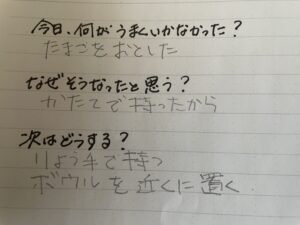 今日、何がうまくいかなかった？
たまごをおとした
なぜそうなったと思う？
かたてで持ったから
次はどうする？
りょう手で持つ
ボウルを近くに置く